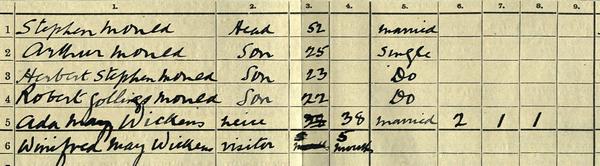 1. 2. 3. 4. 5. 6. 7. 8. 9.
1 Stephen Mould Head 52 married
2 Arthur Mould Son 25 Single
3 Herbert Stephen Mould Son 23 Do
4 Robert Gollings Mould Son 22 Do
5 Ada May Wickens neice 38 married 2 1 1
6 Winifred May Wickens visitor 5 5 month